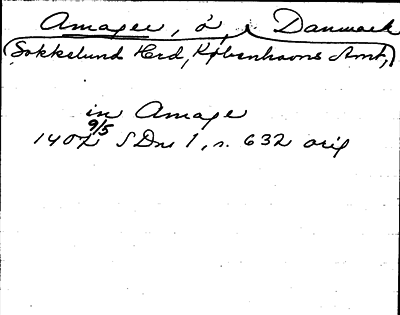 Amager, ö, Danmark
(Sokkelund Hrd, Københavns Amt,)
in Amage
9/5
1402 SDns 1, n. 632 orig